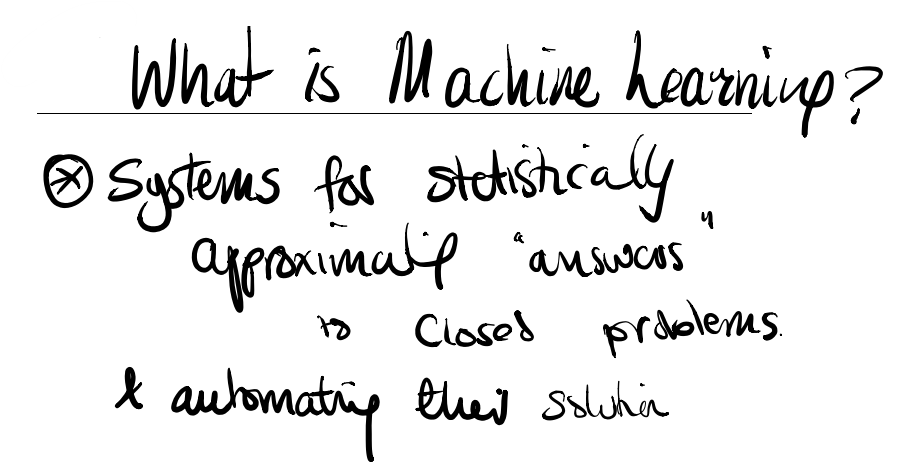 What is Machine Learning?
⊛ Systems for statistically
approximating "answers"
to closed problems.
& automating their solution